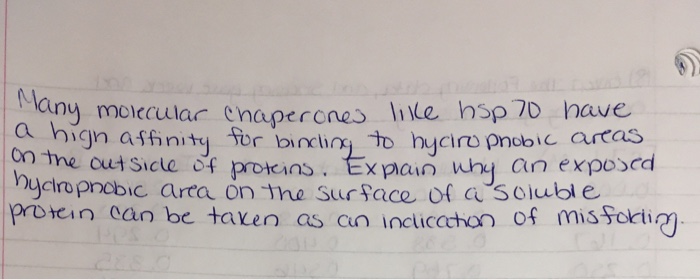 Many molecular chaperones like hsp 70 have
a high affinity for binding to hydrophobic areas
on the outside of proteins. Explain why an exposed
hydrophobic area on the surface of a soluble
protein can be taken as an indication of misfolding.